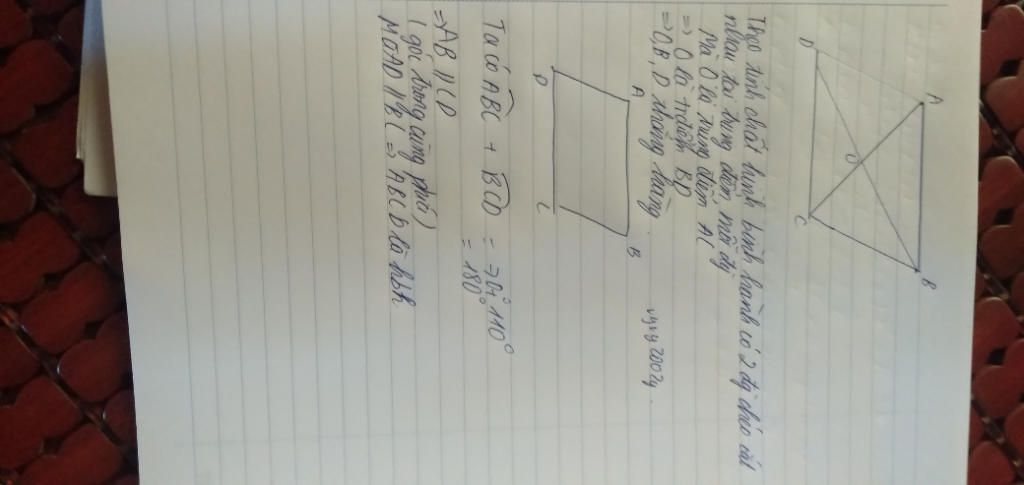 A
B
D
O
C
Theo tính chất hình bình hành có 2 đg chéo cắt
nhau tại trung điểm mỗi đg
Mà O là trung điểm AC
=> O là trđiểm BD
=> O, B, D thẳng hàng.
A
B
D
C
Ta có ABC + BCD = 70° + 110°
= 180°
=> AB // CD
(góc trong cùng phía)
Mà AD // BC => ABCD là hbh.